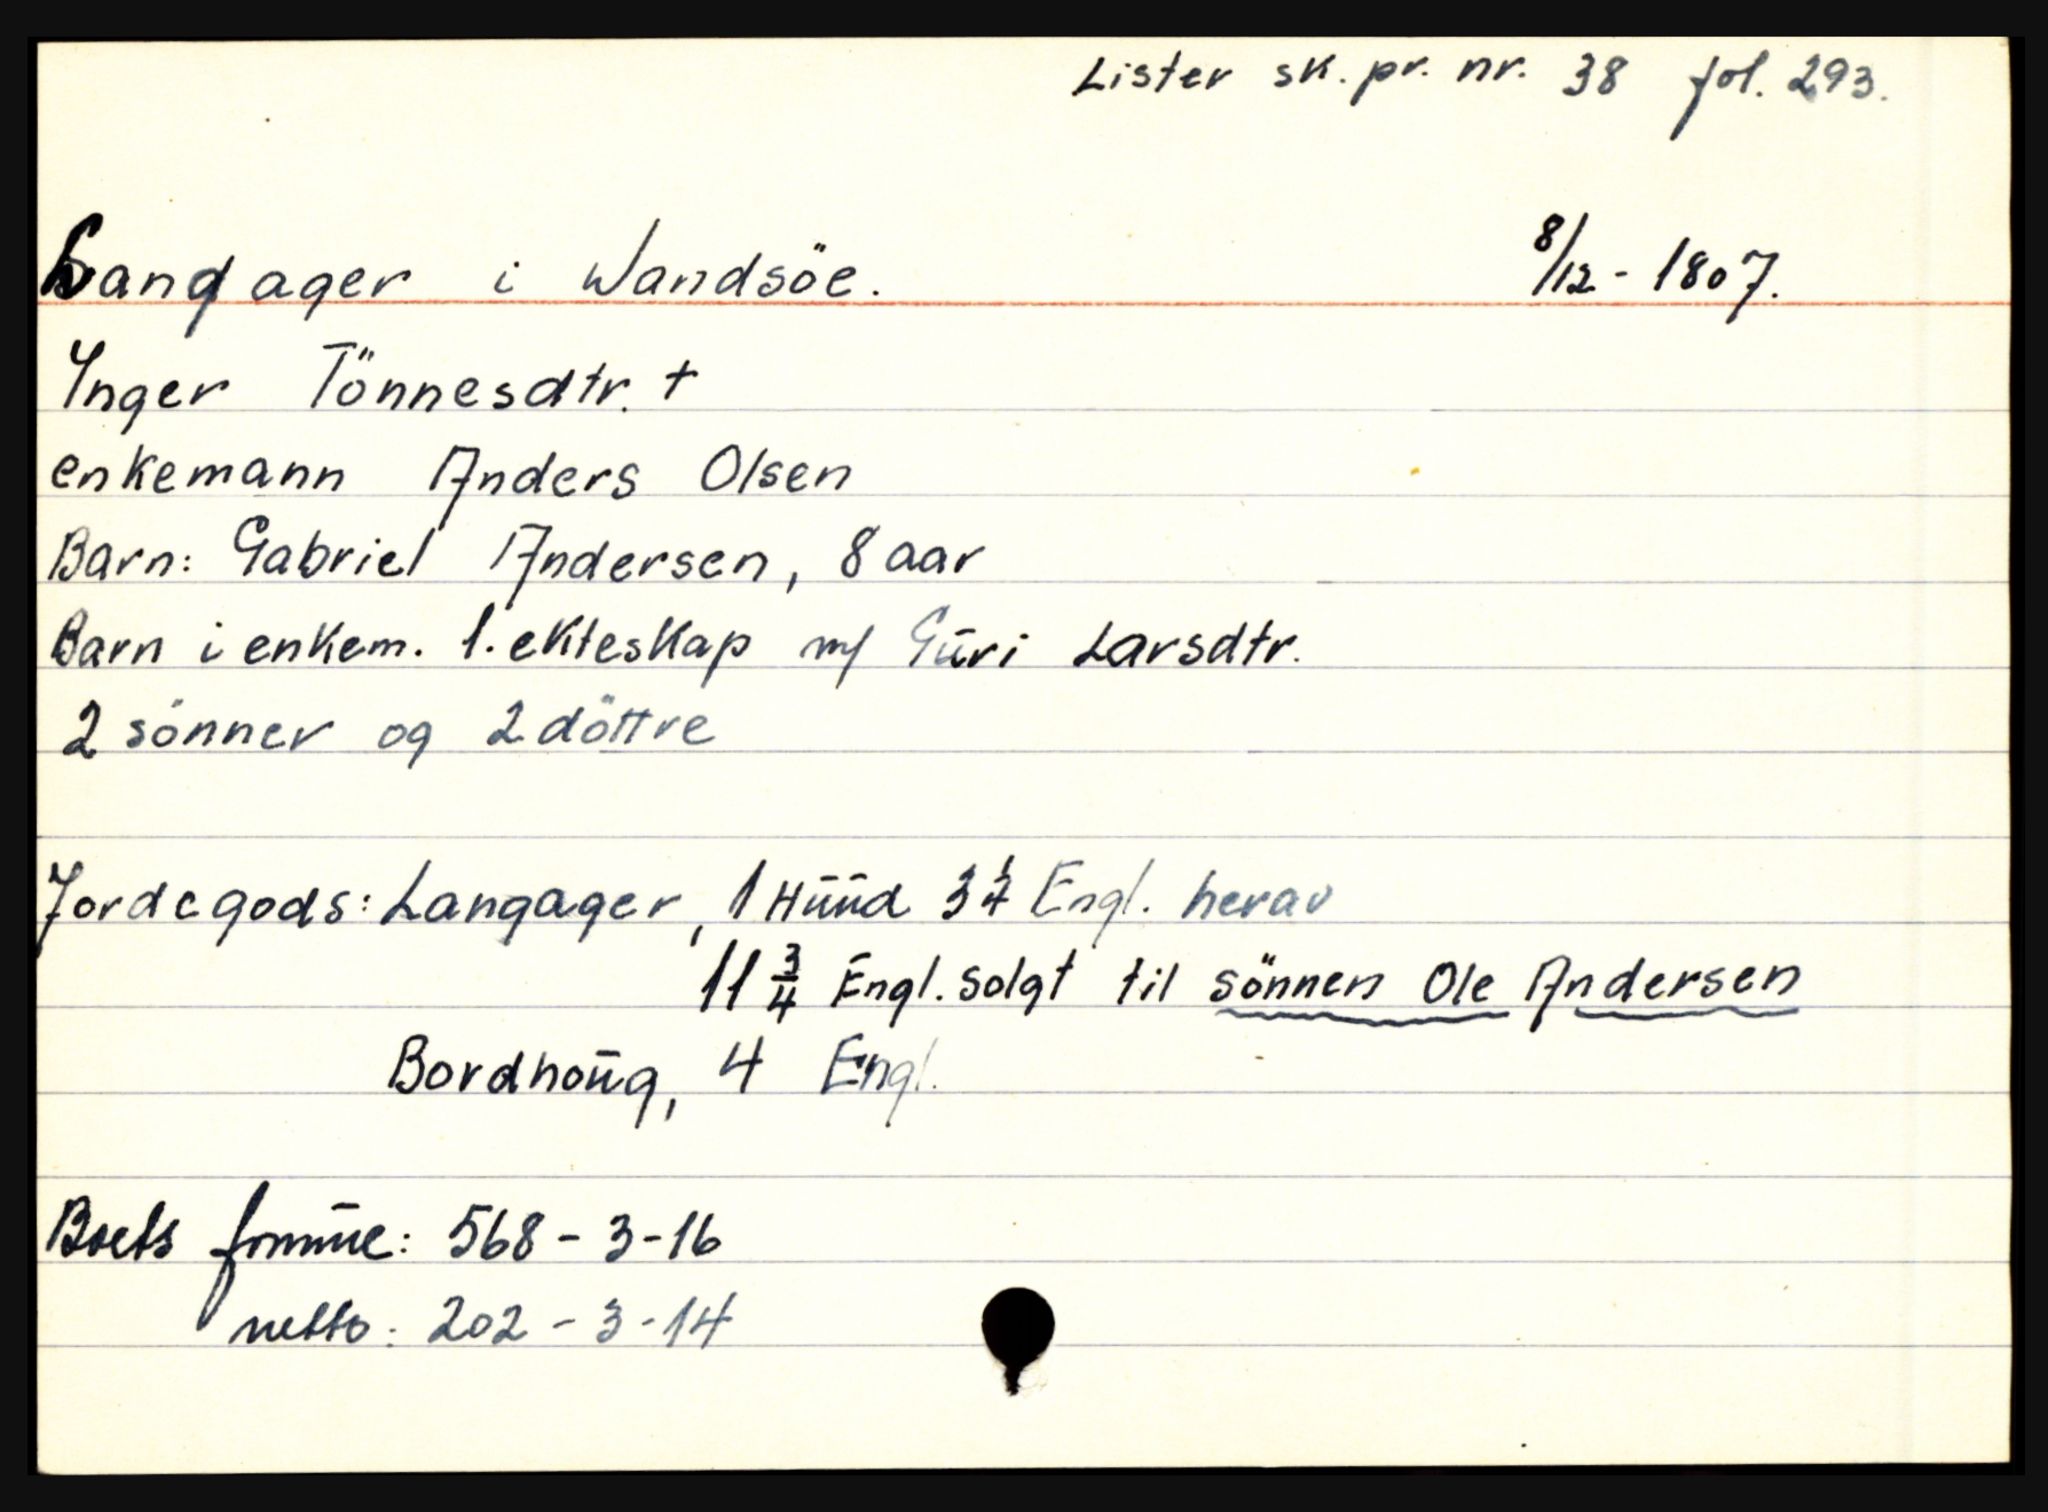 Lister sk. pr. nr. 38 fol. 293.
Langager i Wandsöe. 8/12 - 1807.
Inger Tönnesdtr. +
enkemann Anders Olsen
Barn: Gabriel Andersen, 8 aar
Barn i enkem. 1. ekteskap m/ Gūri Larsdtr.
2 sönner og 2 döttre
Jordegods: Langager, 1 Hūūd 3 Engl. herav
11 3/4 Engl. solgt til sönnen Ole Andersen
Bordhoūg, 4 Engl.
Boets : 568 - 3 - 16
netto: 202 - 3 - 14